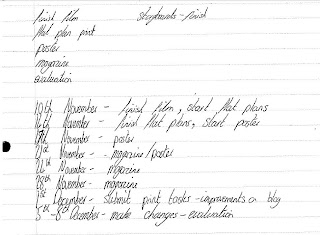 finish film storyboards - finish
flat plan print
poster
magazine
evaluation
10th November - finish film, start flat plans
14th November - finish flat plans, start poster
November - poster
21st November - magazine/poster
24th November - magazine
28th November - magazine
1st December - submit print tasks - improvements on blog
5th - 8th December - make changes - evaluation